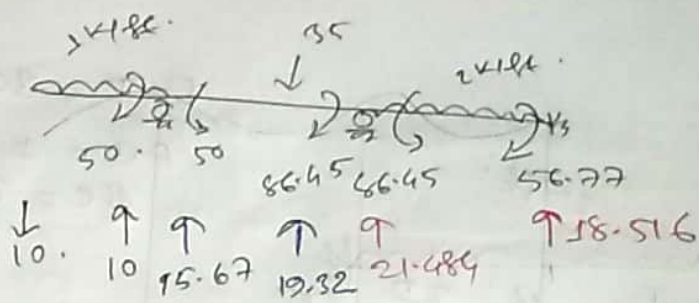 35
50. 50 86.45 86.45 56.77
10. 10 15.67 19.32 21.484 18.516